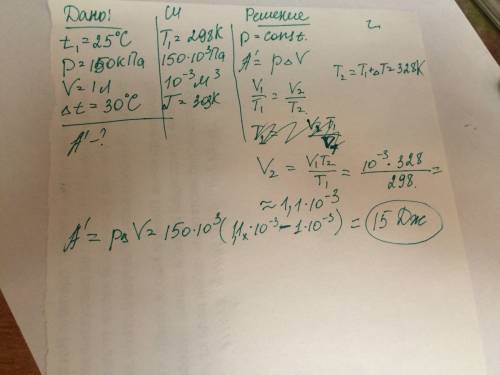 Дано:
t₁=25°C
P=150кПа
V=1л
Δt=30°C
A'-?
СИ
T₁=298К
150·10³Па
10⁻³м³
T=303К
Решение
P=const.
A'=pΔV
V₁/T₁ = V₂/T₂
T₂=T₁+ΔT=328К
V₂ = V₁T₂/T₁ = 10⁻³·328/298. =
≈1,1·10⁻³
A'= pΔV= 150·10³(1,1·10⁻³-1·10⁻³) = 15 Дж